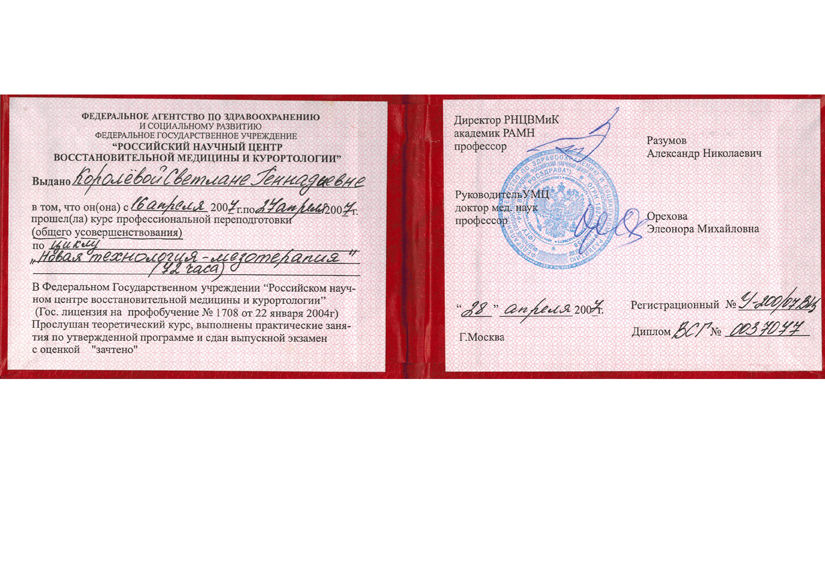 ФЕДЕРАЛЬНОЕ АГЕНТСТВО ПО ЗДРАВООХРАНЕНИЮ
И СОЦИАЛЬНОМУ РАЗВИТИЮ
ФЕДЕРАЛЬНОЕ ГОСУДАРСТВЕННОЕ УЧРЕЖДЕНИЕ
“РОССИЙСКИЙ НАУЧНЫЙ ЦЕНТР
ВОССТАНОВИТЕЛЬНОЙ МЕДИЦИНЫ И КУРОРТОЛОГИИ”
Выдано Королёвой Светлане Геннадьевне
в том, что он(она) с 16 апреля 2007 г.по 27 апреля 2007 г.
прошел(ла) курс профессиональной переподготовки
(общего усовершенствования)
по циклу
„Новая технология - мезотерапия"
(72 часа)
В Федеральном Государственном учреждении “Российском науч-
ном центре восстановительной медицины и курортологии”
(Гос. лицензия на профобучение № 1708 от 22 января 2004г)
Прослушан теоретический курс, выполнены практические заня-
тия по утвержденной программе и сдан выпускной экзамен
с оценкой "зачтено"
Директор РНЦВМиК
академик РАМН
профессор
Разумов
Александр Николаевич
РуководительУМЦ
доктор мед. наук
профессор
Орехова
Элеонора Михайловна
“ 28 ” апреля 2007г.
Г.Москва
Регистрационный № У-200/07ВЦ
Диплом ВСГ № 0037077